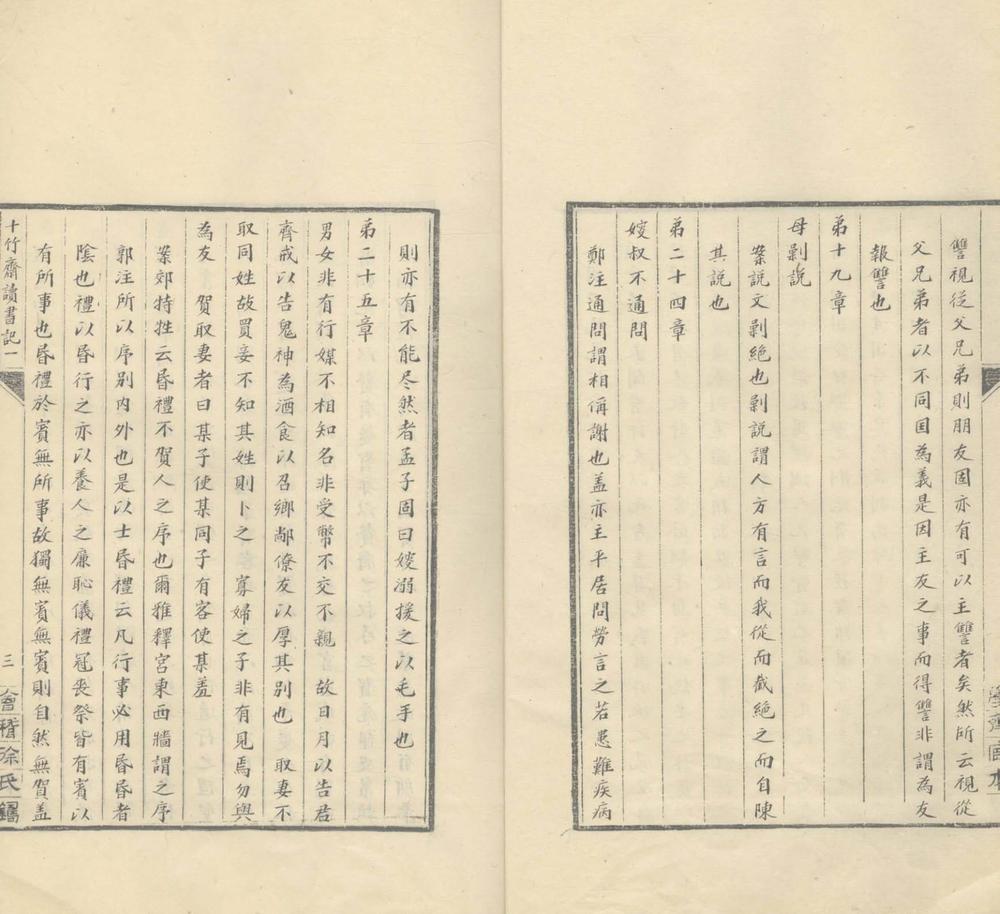 讐視從父兄弟則朋友固亦有可以主讐者矣然所云視從
父兄弟者以不同国為義是因主友之事而得讐非謂為友
報讐也
弟十九章
毋剿說
案說文剿絕也剿說謂人方有言而我從而截絕之而自陳
其說也
弟二十四章
嫂叔不通問
鄭注通問謂相稱謝也盖亦主平居問勞言之若患難疾病
則亦有不能尽然者孟子固曰嫂溺援之以毛手也
弟二十五章
男女非有行媒不相知名非受幣不交不親 故日月以告君
齊戒以告鬼神為酒食以召鄉鄰僚友以厚其别也 取妻不
取同姓故買妾不知其姓則卜之 寡婦之子非有見焉勿與
為友 賀取妻者曰某子使某同子有客使某羞
案郊特牲云昏禮不賀人之序也爾雅釋宮東西牆謂之序
郭注所以序别内外也是以士昏禮云凡行事必用昏昏者
陰也禮以昏行之亦以養人之廉恥儀禮冠丧祭皆有賓以
有所事也昏禮於賓無所事故獨無賓無賓則自然無賀盖
十竹齋讀書記一
三
會稽徐氏鑄